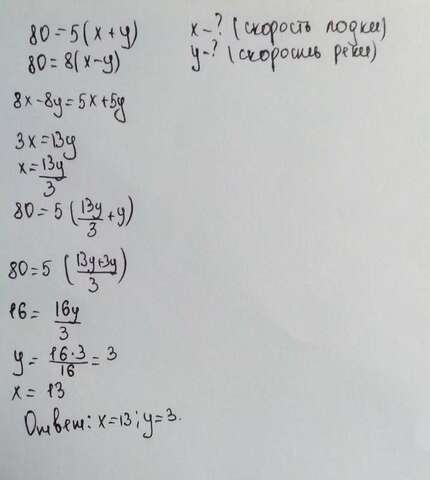 80 = 5(x + y)
x - ? (скорость лодки)
80 = 8(x - y)
y - ? (скорость реки)
8x - 8y = 5x + 5y
3x = 13y
x = 13y/3
80 = 5 (13y/3 + y)
80 = 5 (13y+3y/3)
16 = 16y/3
y = 16·3/16 = 3
x = 13
Ответ: x = 13; y = 3.